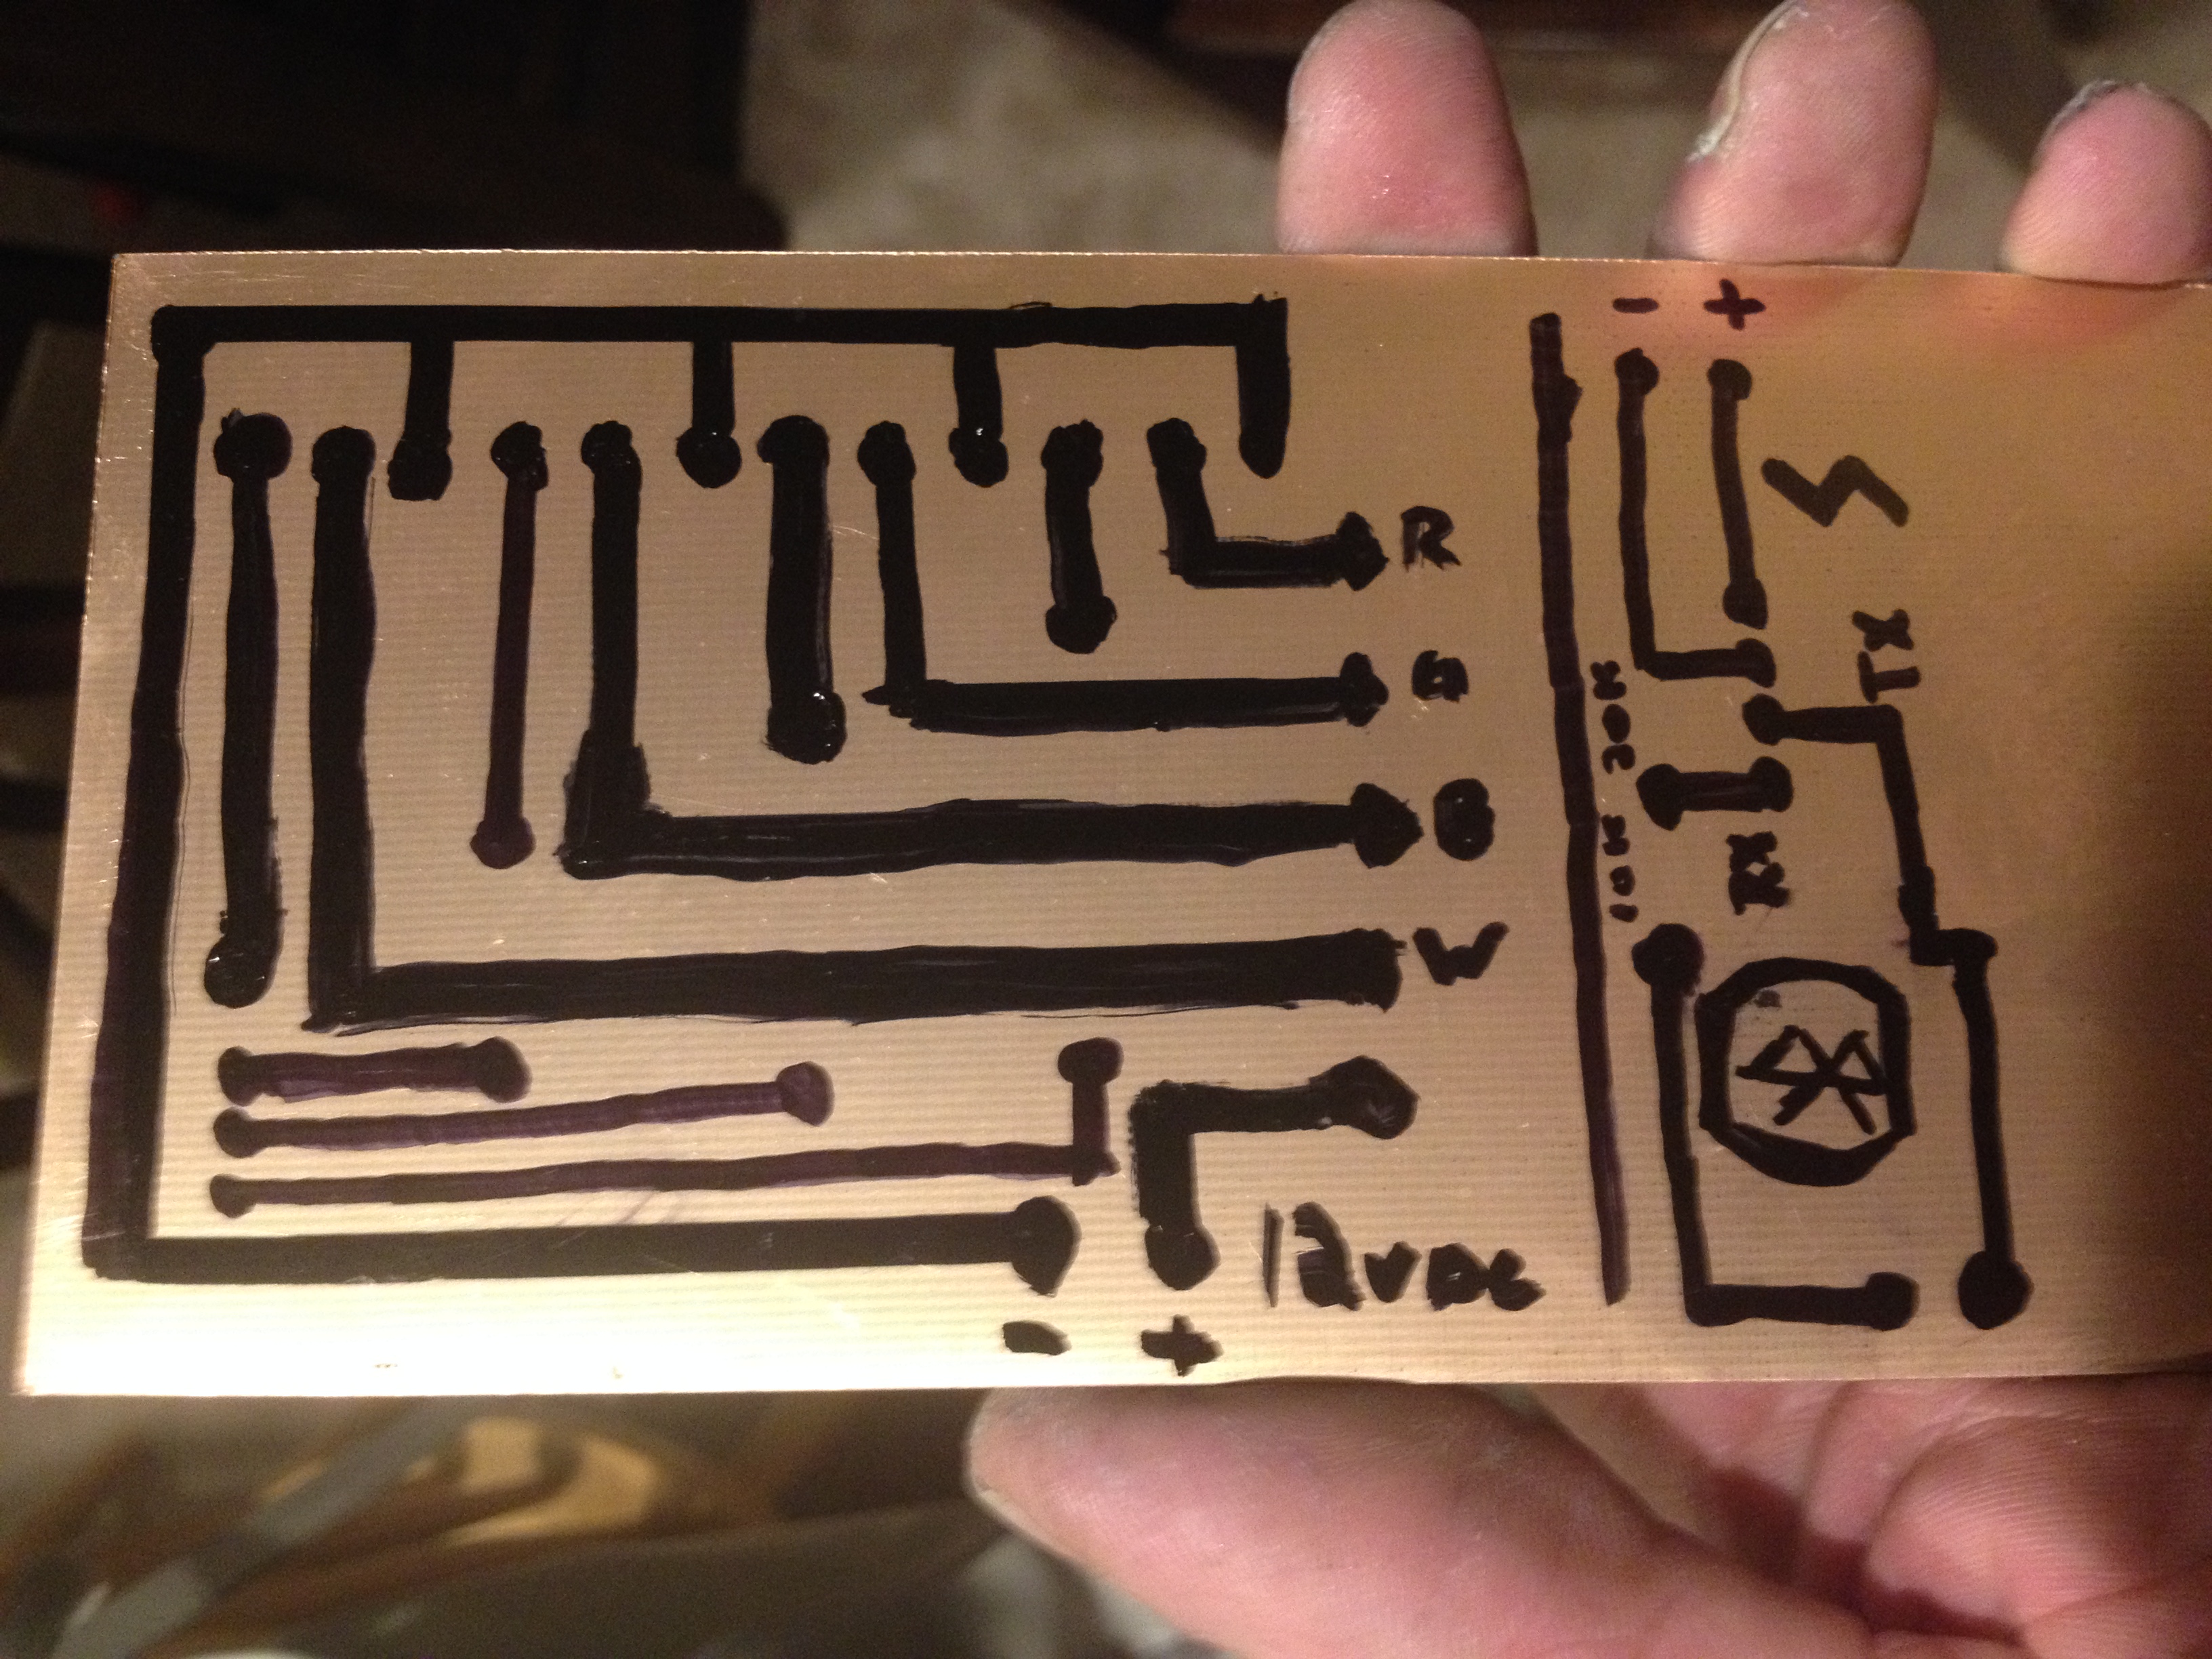 -
+
12VDC
W
B
G
R
10K 20K
-
+
RX
TX